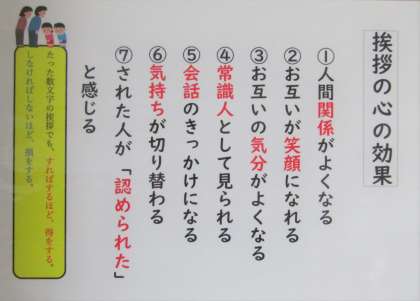 挨拶の心の効果
①人間関係がよくなる
②お互いが笑顔になれる
③お互いの気分がよくなる
④常識人として見られる
⑤会話のきっかけになる
⑥気持ちが切り替わる
⑦された人が「認められた」
と感じる
たった数文字の挨拶でも、すればするほど、得をする。
しなければしないほど、損をする。